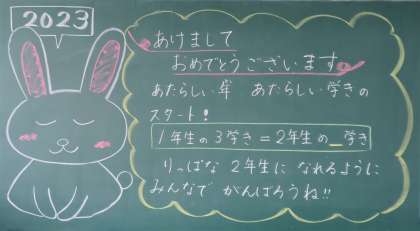 2023
あけまして
おめでとうございます。
あたらしい年 あたらしい学きの
スタート!
1年生の3学き=2年生の_学き
りっぱな 2年生に なれるように
みんなで がんばろうね!!